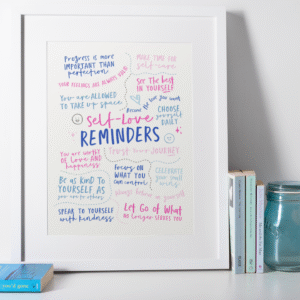 Progress is more
IMPORTANT THAN
perfection
MAKE TIME FOR
self-care
YOUR FEELINGS ARE ALWAYS VALID
See The best
IN YOURSELF
You are ALLOWED
TO TAKE up space
Be
CHOOSE
yourself
DAILY
Self-Love
REMINDERS
You are worthy
OF Love AND
happiness
Trust your JOURNEY
Focus ON
WHAT YOU
can control
CELEBRATE
your small
wins
Be as Kind To
YOURSELF AS
you are to others
Always believe in yourself
SPEAK TO YOURSELF
with kindness
Let Go of What
no Longer SERVES YOU